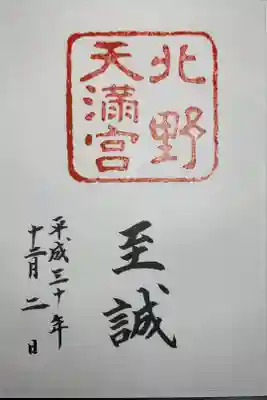 北野
天満宮
至誠
平成三十年
十二月二日